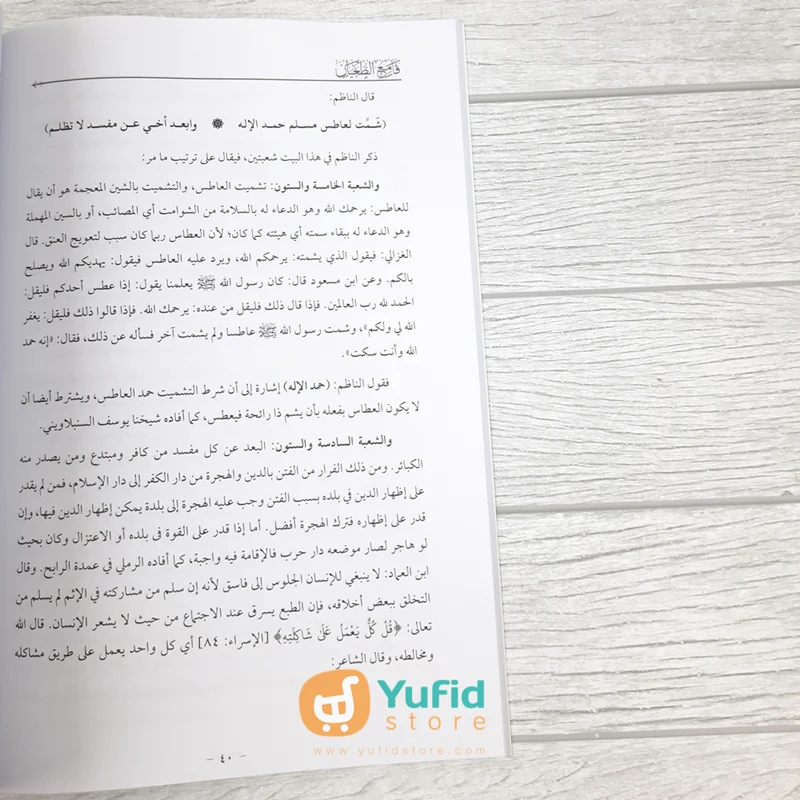 قامع الطغيان
قال الناظم:
(شَمِّت لعاطس مسلم حمد الإله ۞ وابعد أخي عن مفسد لا تظلم)
ذكر الناظم في هذا البيت شعبتين، فيقال على ترتيب ما مر:
والشعبة الخامسة والستون: تشميت العاطس، والتشميت بالشين المعجمة هو أن يقال
للعاطس: يرحمك الله وهو الدعاء له بالسلامة من الشوامت أي المصائب، أو بالسين المهملة
وهو الدعاء له ببقاء سمته أي هيئته كما كان؛ لأن العطاس ربما كان سبب لتعويج العنق. قال
الغزالي: فيقول الذي يشمته: يرحمكم الله، ويرد عليه العاطس فيقول: يهديكم الله ويصلح
بالكم. وعن ابن مسعود قال: كان رسول الله ﷺ يعلمنا يقول: إذا عطس أحدكم فليقل:
الحمد لله رب العالمين. فإذا قال ذلك فليقل من عنده: يرحمك الله. فإذا قالوا ذلك فليقل: يغفر
الله لي ولكم»، وشمت رسول الله ﷺ عاطسا ولم يشمت آخر فسأله عن ذلك، فقال: «إنه حمد
الله وأنت سكت».
فقول الناظم: (حمد الإله) إشارة إلى أن شرط التشميت حمد العاطس، ويشترط أيضا أن
لا يكون العطاس بفعله بأن يشم ذا رائحة فيعطس، كما أفاده شيخنا يوسف السنبلاويني.
والشعبة السادسة والستون: البعد عن كل مفسد من كافر ومبتدع ومن يصدر منه
الكبائر. ومن ذلك الفرار من الفتن بالدين والهجرة من دار الكفر إلى دار الإسلام، فمن لم يقدر
على إظهار الدين في بلده بسبب الفتن وجب عليه الهجرة إلى بلدة يمكن إظهار الدين فيها، وإن
قدر على إظهاره فترك الهجرة أفضل. أما إذا قدر على القوة فى بلده أو الاعتزال وكان بحيث
لو هاجر لصار موضعه دار حرب فالإقامة فيه واجبة، كما أفاده الرملي في عمدة الرابح. وقال
ابن العماد: لا ينبغي للإنسان الجلوس إلى فاسق لأنه إن سلم من مشاركته في الإثم لم يسلم من
التخلق ببعض أخلاقه، فإن الطبع يسرق عند الاجتماع من حيث لا يشعر الإنسان. قال الله
تعالى: ﴿قُلْ كُلٌّ يَعْمَلُ عَلَىٰ شَاكِلَتِهِ﴾ [الإسراء: ٨٤] أي كل واحد يعمل على طريق مشاكله
ومخالطه، وقال الشاعر:
Yufid
store
www.yufidstore.com
– ٤٠ –